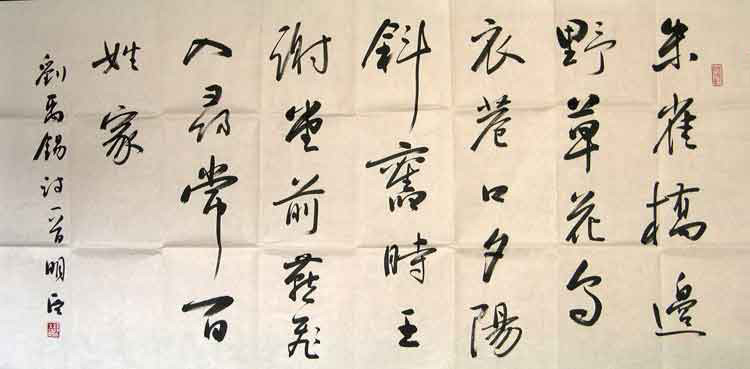 朱雀橋邊
野草花烏
衣巷口夕陽
斜舊時王
謝堂前燕飛
入尋常百
姓家
劉禹錫詩一首明